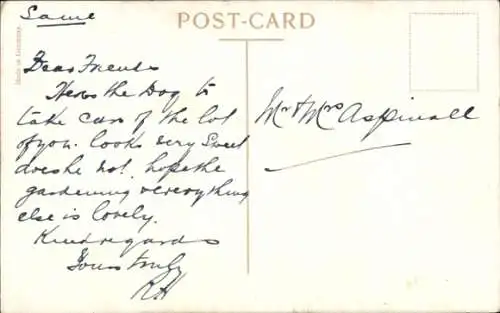 Same
POST-CARD
Made in Germany
Dear Friends
Heres the Dog to
take care of the lot
of you. looks very Sweet
does he not. hope the
gardening & everything
else is lovely.
Kind regards
Yours truly
RH
Mr & Mrs Aspinall